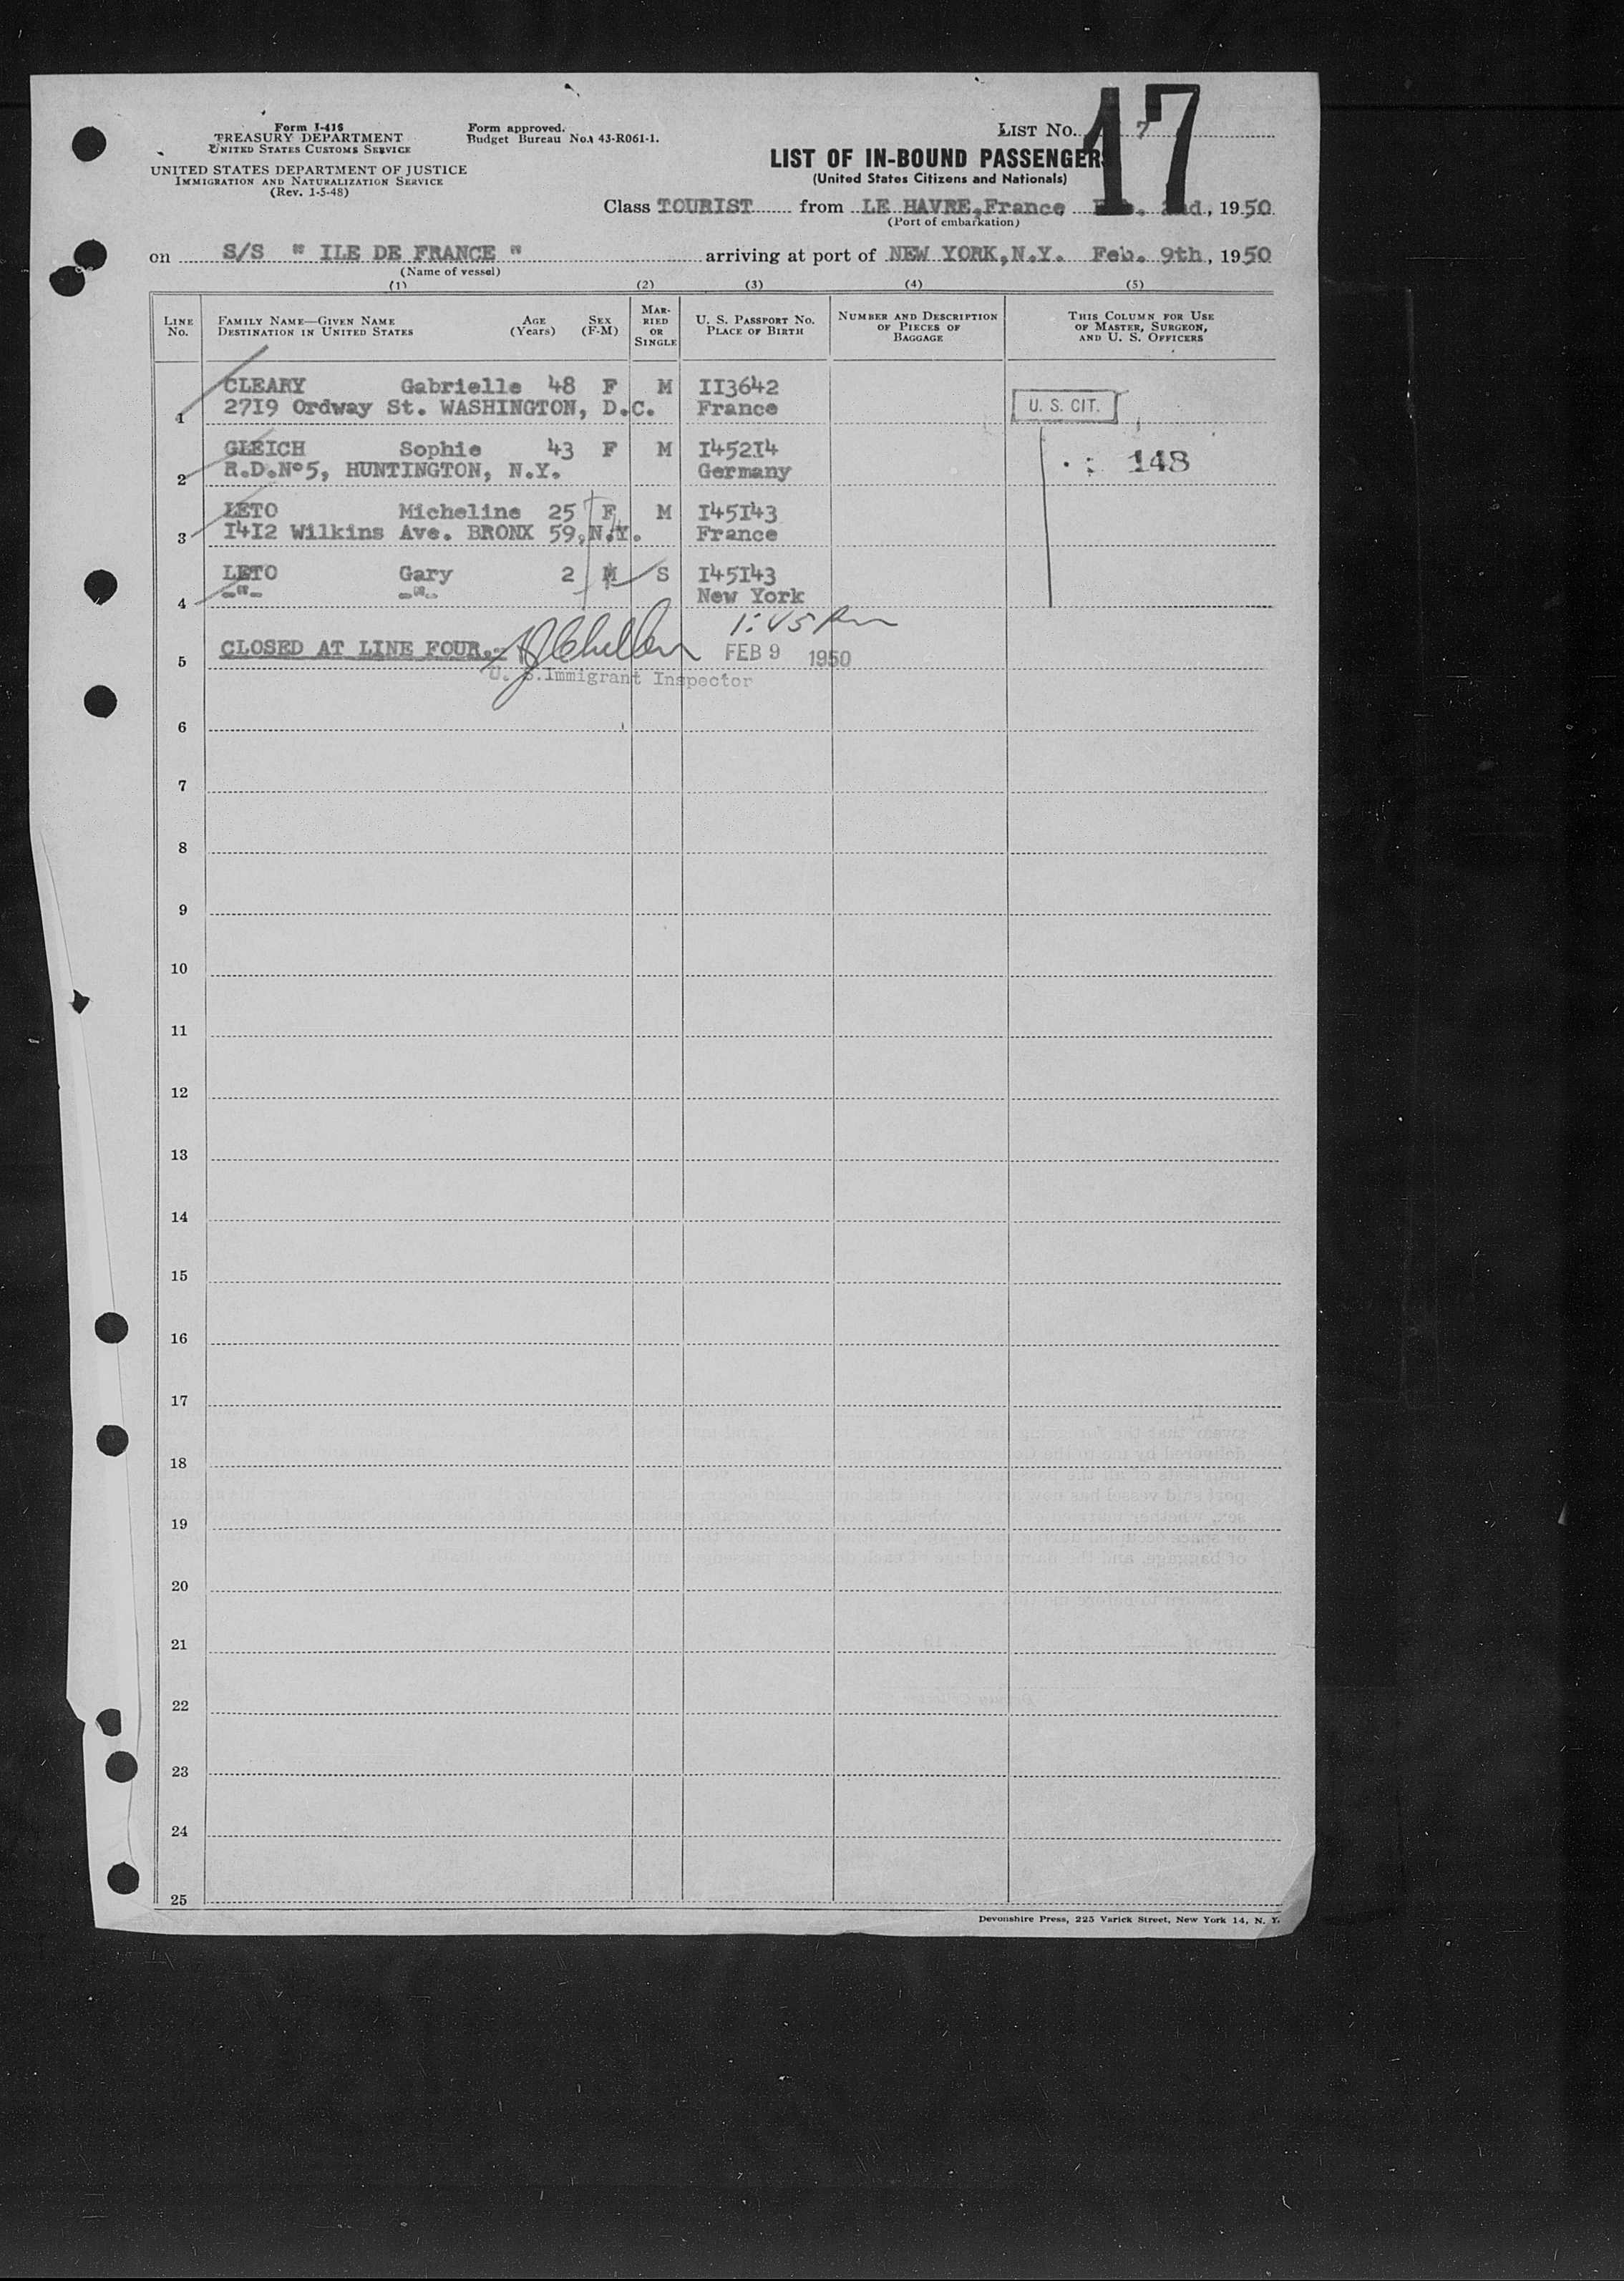 Form I-416
TREASURY DEPARTMENT
UNITED STATES CUSTOMS SERVICE
UNITED STATES DEPARTMENT OF JUSTICE
IMMIGRATION AND NATURALIZATION SERVICE
(Rev. 1-5-48)
Form approved.
Budget Bureau No. 43-R061-1.
LIST No. 7
17
LIST OF IN-BOUND PASSENGERS
(United States Citizens and Nationals)
Class TOURIST from LE HAVRE, France Feb. 2nd, 1950
(Port of embarkation)
on S/S " ILE DE FRANCE " arriving at port of NEW YORK, N.Y. Feb. 9th, 1950
(Name of vessel)
(1) (2) (3) (4) (5)
LINE No. FAMILY NAME—GIVEN NAME DESTINATION IN UNITED STATES AGE (Years) SEX (F-M) MARRIED OR SINGLE U. S. PASSPORT No. PLACE OF BIRTH NUMBER AND DESCRIPTION OF PIECES OF BAGGAGE THIS COLUMN FOR USE OF MASTER, SURGEON, AND U. S. OFFICERS
CLEARY Gabrielle 48 F M II3642
1 27I9 Ordway St. WASHINGTON, D.C. France U. S. CIT.
GLEICH Sophie 43 F M I452I4
2 R.D.N°5, HUNTINGTON, N.Y. Germany 148
LETO Micheline 25 F M I45I43
3 I4I2 Wilkins Ave. BRONX 59, N.Y. France
LETO Gary 2 M S I45I43
4 -"- -"- New York
1:45 Pm
5 CLOSED AT LINE FOUR.- FEB 9 1950
U. S. Immigrant Inspector
6
7
8
9
10
11
12
13
14
15
16
17
18
19
20
21
22
23
24
25
Devonshire Press, 225 Varick Street, New York 14, N. Y.